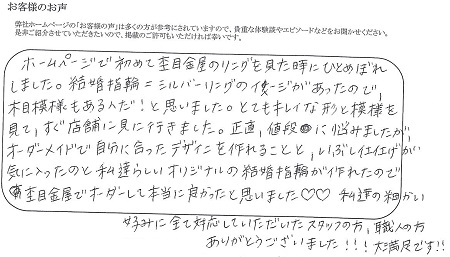 お客様のお声
弊社ホームページの「お客様の声」は多くの方が参考にされていますので、貴重な体験談やエピソードなどをお聞かせください。
是非ご紹介させていただきたいので、掲載のご許可もいただければ幸いです。
ホームページで初めて杢目金屋のリングを見た時にひとめぼれ
しました。結婚指輪=シルバーリングのイメージがあったので、
木目模様もあるんだ!と思いました。とてもキレイな形と模様を
見て、すぐ店舗に見に行きました。正直、値段に悩みましたが、
オーダーメイドで自分に合ったデザインを作れることと、いぶし仕上げが
気に入ったのと私達らしいオリジナルの結婚指輪が作れたので
杢目金屋でオーダーして本当に良かったと思いました♡♡ 私達の細かい
好みに全て対応していただいたスタッフの方、職人の方
ありがとうございました!!!大満足です!!